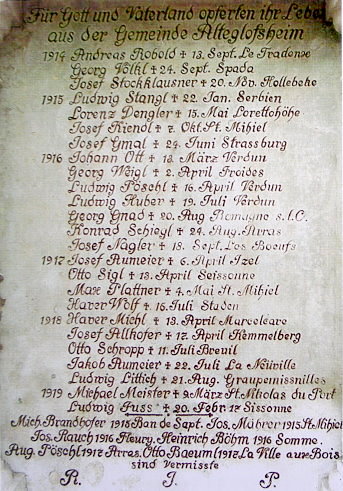 Für Gott und Vaterland opferten ihr Leben
aus der Gemeinde Alteglofsheim
1914 Andreas Robold + 13. Sept. Le Tradense
Georg Völkl + 24. Sept. Spada
Josef Stockklausner + 20. Nov. Hollebeke
1915 Ludwig Stangl + 22. Jan. Serbien
Lorenz Dengler + 15. Mai Lorettohöhe
Josef Kiendl + 7. Okt. St. Mihiel
Josef Gmal + 24. Juni Strassburg
1916 Johann Ott + 13. März Verdun
Georg Weigl + 2. April Froides
Ludwig Pöschl + 16. April Verdun
Ludwig Huber + 19. Juli Verdun
Georg Gnad + 20. Aug Romagne s.l.C.
Konrad Schiegl + 24. Aug. Arras
Josef Nagler + 18. Sept. Les Boeufs
1917 Josef Aumeier + 6. April Izel
Otto Sigl + 13. April Seissonne
Max Plattner + 4. Mai St. Mihiel
Xaver Wolf + 16. Juli Staden
1918 Xaver Michl + 13. April Marcelcave
Josef Allkofer + 17. April Kemmelberg
Otto Schropp + 11. Juli Breuil
Jakob Aumeier + 22. Juli La Neuville
Ludwig Littich + 21. Aug. Graupemissnilles
1919 Michael Meister + 9. März St. Nikolas du Port
Ludwig Fuss + 20. Febr 17 Sissonne
Mich. Brandhofer 1915 Ban de Sapt. Jos. Mührer 1915 St Mihiel
Jos. Rauch 1916 Fleury. Heinrich Böhm 1916 Somme.
Aug. Pöschl 1917 Arras. Otto Baeuml 1917 La Ville aux Bois
sind vermisste
R. I. P